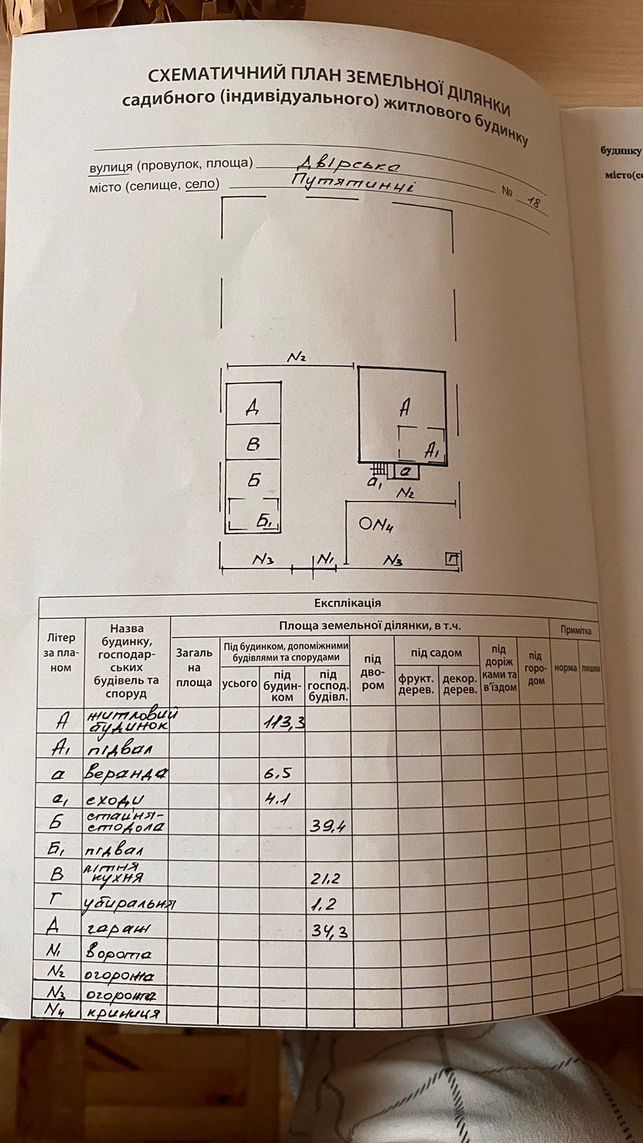 СХЕМАТИЧНИЙ ПЛАН ЗЕМЕЛЬНОЇ ДІЛЯНКИ
садибного (індивідуального) житлового будинку
будинку
вулиця (провулок, площа) Двірська
місто (селище, село) Путятинці № 18
N2
Д
А
В
А1
Б
а1 а
N2
Б1
N4
N3 N1 N3 Г
Експлікація
Літер за пла-ном
Назва будинку, господар-ських будівель та споруд
Площа земельної ділянки, в т.ч.
Примітка
Загаль на площа
Під будинком, допоміжними будівлями та спорудами
під дво-ром
під садом
під доріж ками та в'їздом
під горо-дом
норма
лишки
усього
під будин-ком
під господ. будівл.
фрукт. дерев.
декор. дерев.
А житловий будинок 113,3
А1 підвал
а веранда 6.5
а1 сходи 4.1
Б стайня-стодола 39.4
Б1 підвал
В літня кухня 21.2
Г убиральня 1.2
Д гараж 34,3
N1 ворота
N2 огорожа
N3 огорожа
N4 криниця